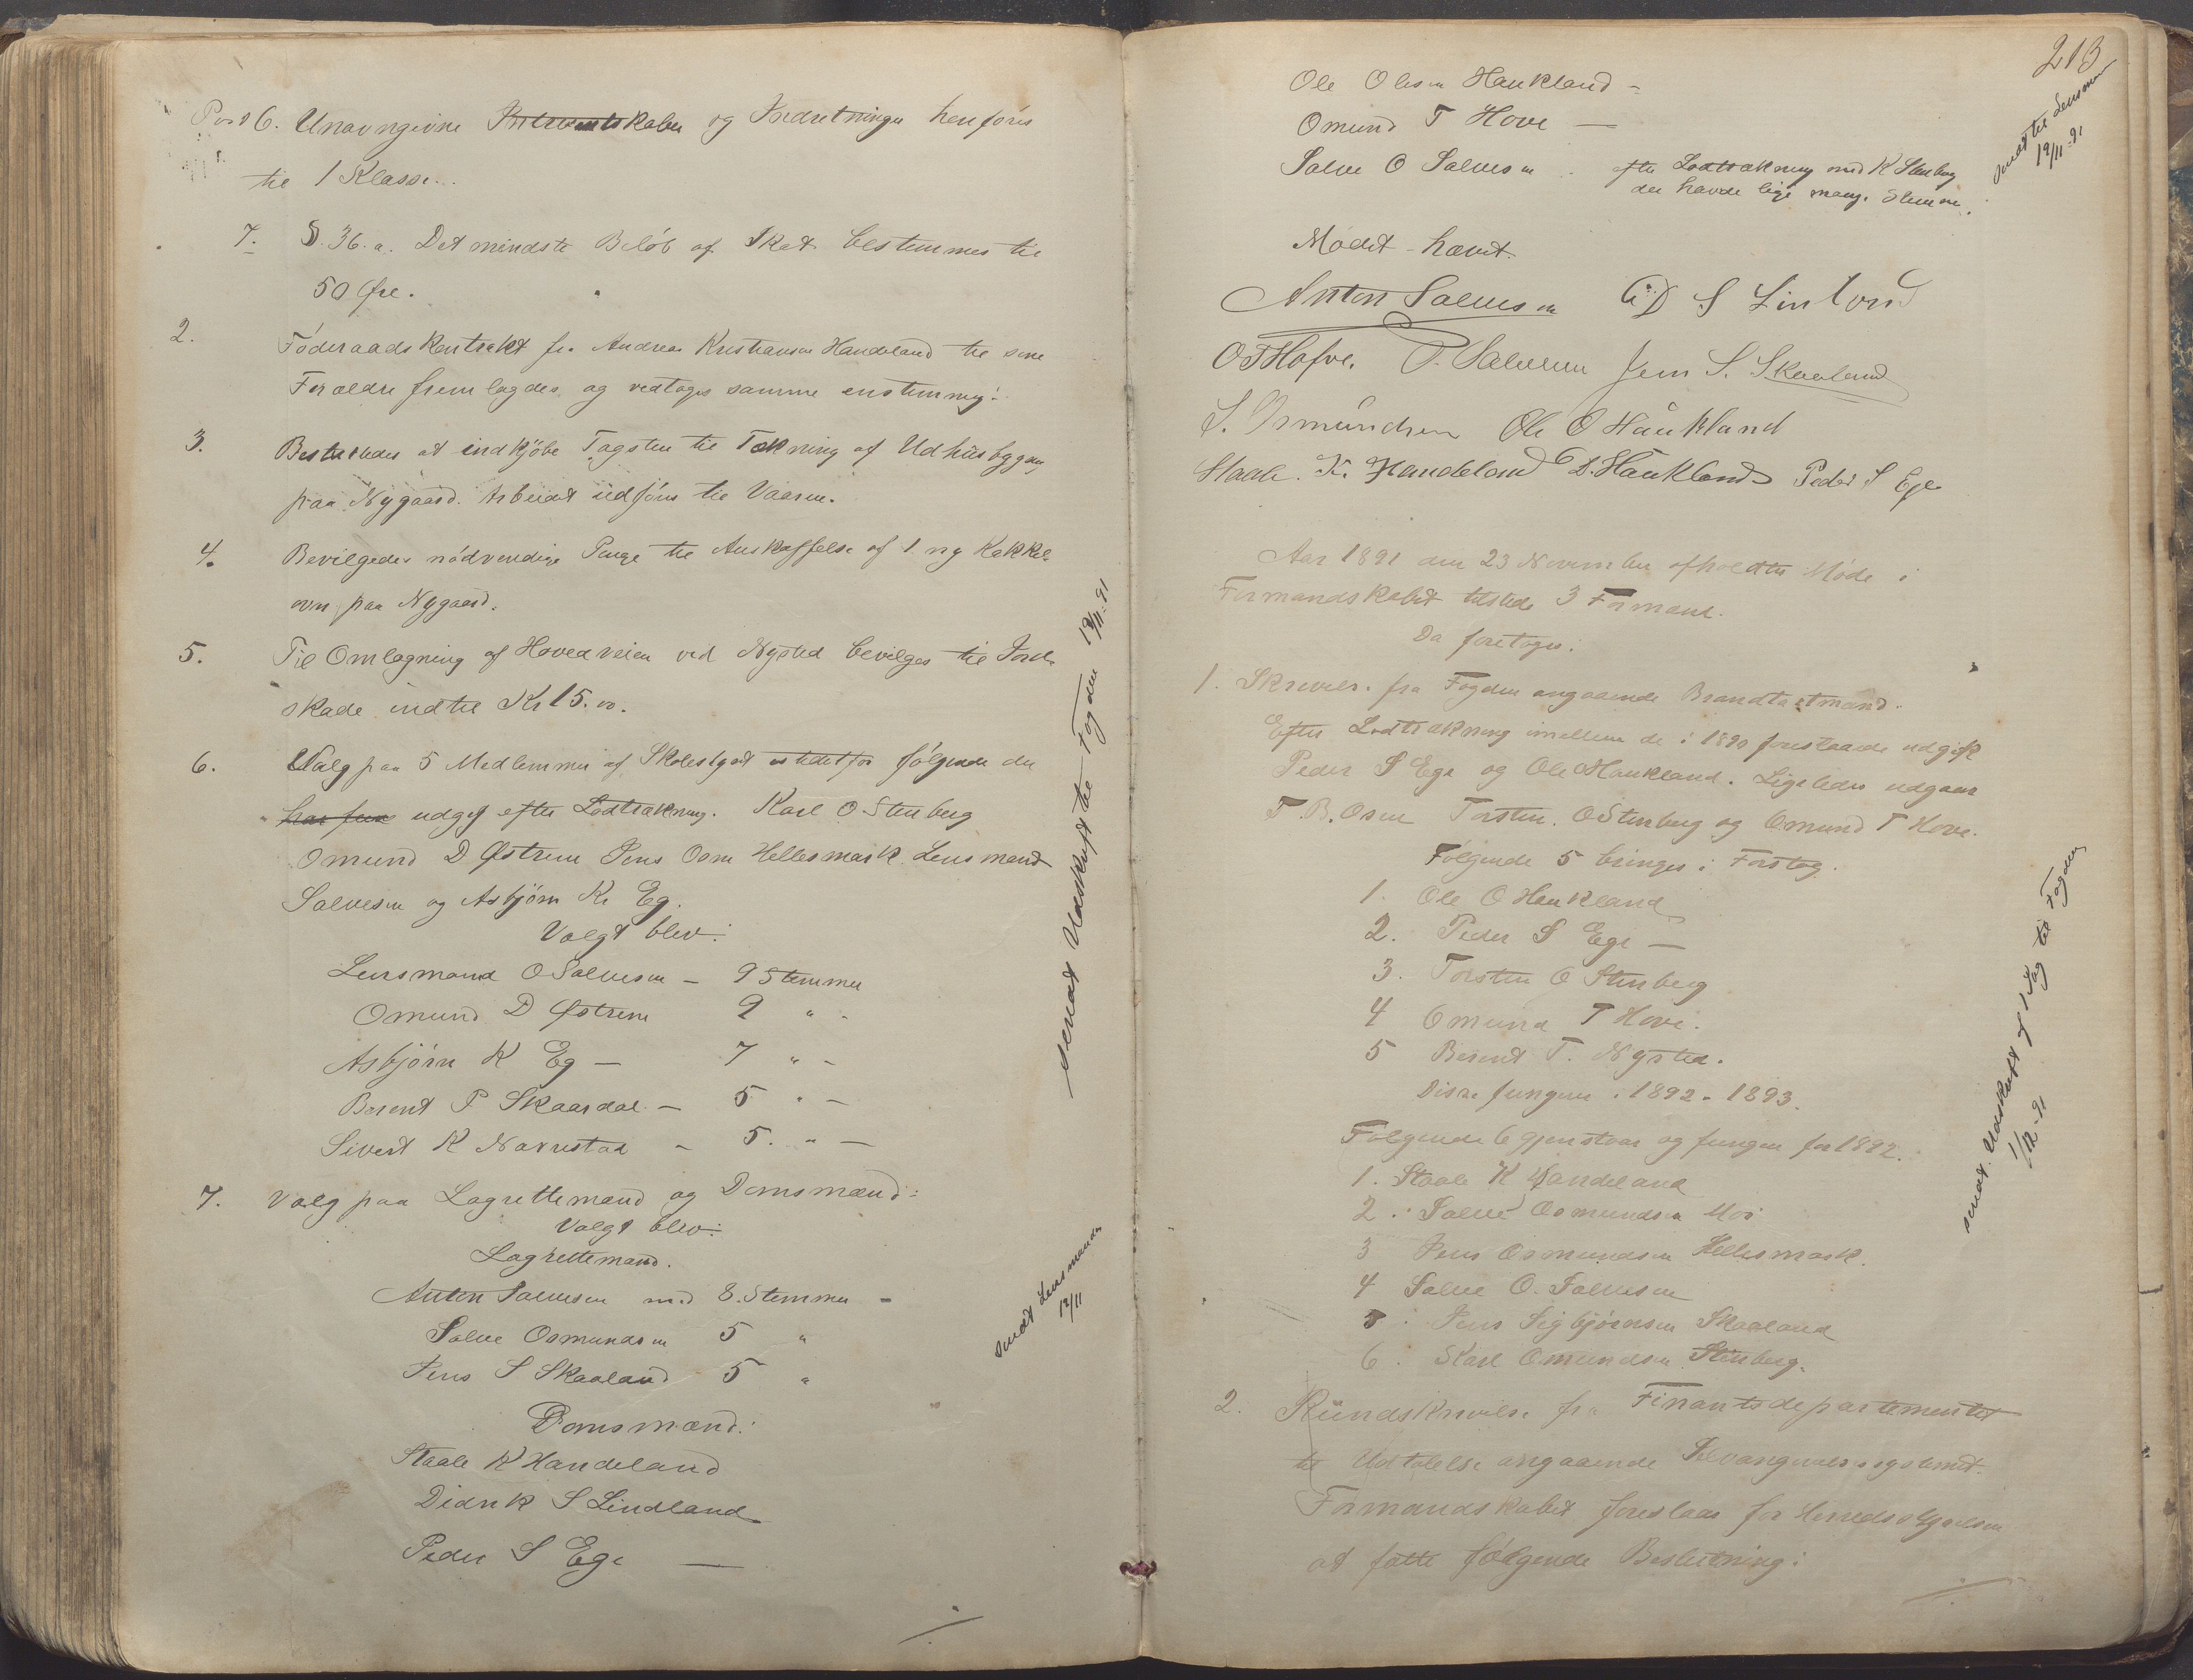 Post 6. Unavngivne og Indretninger henføres
til 1 Klasse.
7. §. 36. a. Det mindste Beløb af Skat bestemmes til
50 Øre.
2. Føderaadskontrakt fra Andreas Kristiansen Handeland til sine
Forældre fremlagdes og vedtoges samme enstemmig.
3. Besluttedes at indkjøbe Tagsten til Tækning af Udhusbygning
paa Nygaard. Arbeidet udføres til Vaaren.
4. Bevilgedes nødvendige Penge til Anskaffelse af 1 ny Kakkel-
ovn paa Nygaard.
5. Til Omlægning af Hovedveien ved Nysted bevilges til Jord-
skade indtil Kr 15.00.
6. Valg paa 5 Medlemmer af Skolestyret istedetfor følgende der
har udgik efter Lodtrækning. Karl O Stenberg
Omund D Østreim Jens Osm Hellesmark Lensmand
Salvesen og Asbjørn Kr Eg.
Valgt blev:
Lensmand O Salvesen – 9 Stemmer
Omund D Østrem 9 " -
Asbjørn K Eg – 7 " -
Berent P Skaardal – 5 " -
Sivert K Navrestad – 5. " –
7. Valg paa Lagrettemænd og Domsmænd:
Valgt blev:
Lagrettemænd.
Anton Salvesen med 8. Stemmer –
Salve Osmundsen 5 "
Jens S Skaaland 5 "
Domsmænd:
Staale K Handeland
Didrik S Lindland
Peder S Ege —
sendt Udskrift til Fogden 19/11-91
sendt Lensmanden
19/11
213
Ole Olesen Haukland –
Omund T Hove —
Salve O Salvesen . efter Lodtrækning med K Stenberg
der havde lige mange Stemmer.
sendt til Lensman
19/11-91
Mødet hævet.
Anton Salvesen D S Linland
O T Hofve. O. Salvesen Jens S. Skaaland
S. Osmundsen Ole O Haukland
Staale. K. Handeland D. Haukland Peder S Ege
Aar 1891 den 23 November afholdtes Møde i
Formandskabet tilstede 3 Formænd.
Da foretoges:
1. Skrivelse fra Fogden angaaende Brandtaxtmænd.
Efter Lodtrækning imellem de i 1890 udgik
Peder S Ege og Ole O Haukland. Ligeledes udgaar
T. B. Osen Torsten O Stenberg og Omund T Hove.
Følgende 5 bringes i Forslag.
1. Ole O Haukland
2. Peder S Ege —
3. Torsten O Stenberg
4 Omund T Hove.
5 Berent T. Nysted.
Disse fungere i 1892 - 1893.
Følgende 6 gjenstaar og fungere for 1892.
1. Staale K Handeland
2. Salve Osmundsen Moi
3 Jens Osmundsen Hellesmark.
4 Salve O. Salvesen
5 Jens Sigbjørnsen Skaaland
6. Karl Omundsen Stenberg.
sendt Udskrift af 1 Sag til Fogden
1/12-91
2. Rundskrivelse fra Finantsdepartementet
til Udtalelse angaaende
Formandskabet foreslaar for Herredsstyrelsen
at fatte følgende Beslutning: